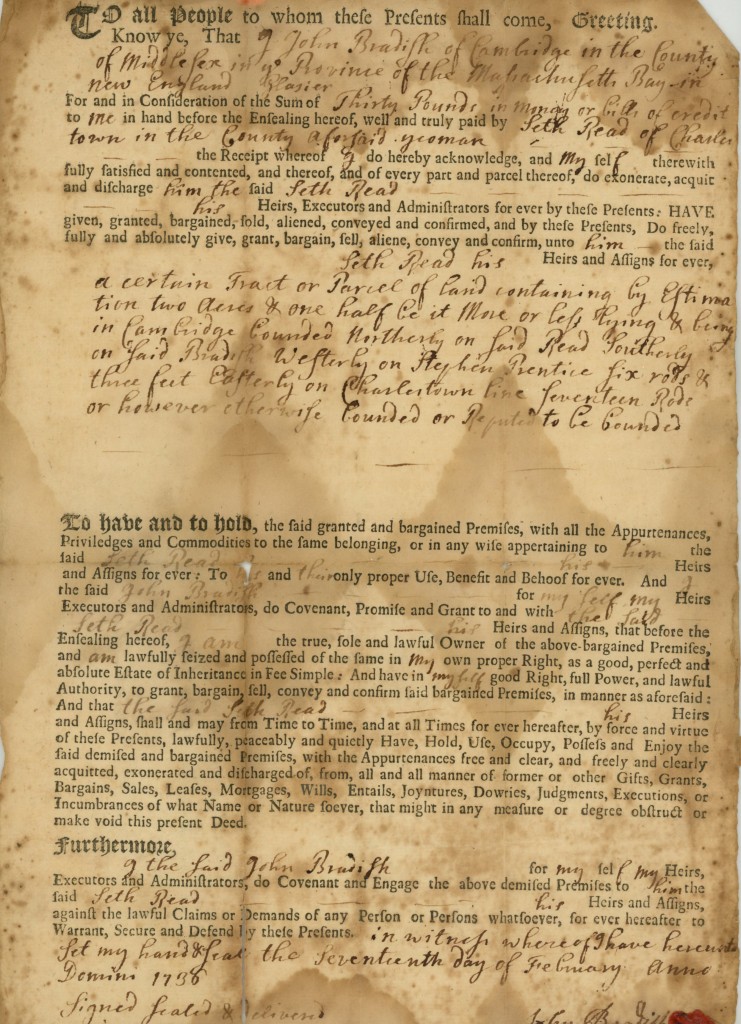 TO all People to whom theſe Preſents ſhall come, Greeting.
Know ye, That I John Bradiſh of Cambridge in the County
of Middleſex in ye Province of the Maſsachuſetts Bay in
new England Glasier
For and in Conſideration of the Sum of Thirty Pounds in money or bills of credit
to me in hand before the Enſealing hereof, well and truly paid by Seth Read of Charles
town in the County aforſaid yeoman
the Receipt whereof I do hereby acknowledge, and my ſelf therewith
fully ſatisfied and contented, and thereof, and of every part and parcel thereof, do exonerate, acquit
and diſcharge him the ſaid Seth Read
his Heirs, Executors and Adminiſtrators for ever by theſe Preſents: HAVE
given, granted, bargained, ſold, aliened, conveyed and confirmed, and by theſe Preſents, Do freely,
fully and abſolutely give, grant, bargain, ſell, aliene, convey and confirm, unto him the ſaid
Seth Read his Heirs and Aſſigns for ever,
a certain Tract or Parcel of land containing by Eſtima
tion two acres & one half be it More or leſs lying & being
in Cambridge bounded Northerly on ſaid Read Southerly
on ſaid Bradiſh Weſterly on Stephen Prentice ſix rods &
three feet Eaſterly on Charlestown line ſeventeen Rods
or however otherwiſe bounded or Reputed to be bounded
To have and to hold, the ſaid granted and bargained Premiſes, with all the Appurtenances,
Priviledges and Commodities to the ſame belonging, or in any wiſe appertaining to him the
ſaid Seth Read his Heirs
and Aſſigns for ever: To his and their only proper Uſe, Benefit and Behoof for ever. And I
the ſaid John Bradiſh for my ſelf my Heirs
Executors and Adminiſtrators, do Covenant, Promiſe and Grant to and with the ſaid
Seth Read his Heirs and Aſſigns, that before the
Enſealing hereof, I am the true, ſole and lawful Owner of the above-bargained Premiſes,
and am lawfully ſeized and poſſeſſed of the ſame in my own proper Right, as a good, perfect and
abſolute Eſtate of Inheritance in Fee Simple: And have in myſelf good Right, full Power, and lawful
Authority, to grant, bargain, ſell, convey and confirm ſaid bargained Premiſes, in manner as aforeſaid:
And that the ſaid Seth Read his Heirs
and Aſſigns, ſhall and may from Time to Time, and at all Times for ever hereafter, by force and virtue
of theſe Preſents, lawfully, peaceably and quietly Have, Hold, Uſe, Occupy, Poſſeſs and Enjoy the
ſaid demiſed and bargained Premiſes, with the Appurtenances free and clear, and freely and clearly
acquitted, exonerated and diſcharged of, from, all and all manner of former or other Gifts, Grants,
Bargains, Sales, Leaſes, Mortgages, Wills, Entails, Joyntures, Dowries, Judgments, Executions, or
Incumbrances of what Name or Nature ſoever, that might in any meaſure or degree obſtruct or
make void this preſent Deed.
Furthermore,
I the ſaid John Bradiſh for my ſelf my Heirs,
Executors and Adminiſtrators, do Covenant and Engage the above demiſed Premiſes to him the
ſaid Seth Read his Heirs and Aſſigns,
againſt the lawful Claims or Demands of any Perſon or Perſons whatſoever, for ever hereafter to
Warrant, Secure and Defend by theſe Preſents. in witneſs whereof I have hereunto
ſet my hand & ſeal the ſeventeenth day of February Anno
Domini 1738
Signed Sealed & Delivered
John Bradiſh